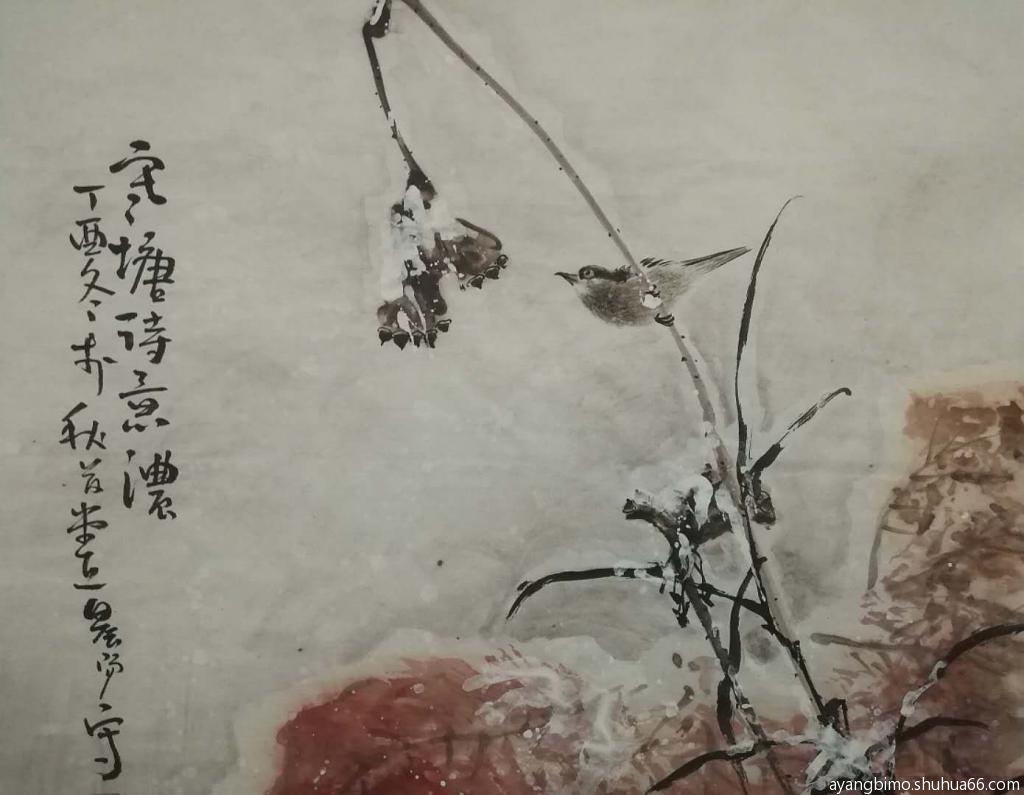 寒塘诗意濃
丁酉冬於秋苔堂逍晨阳守
ayangbimo.shuhua66.com